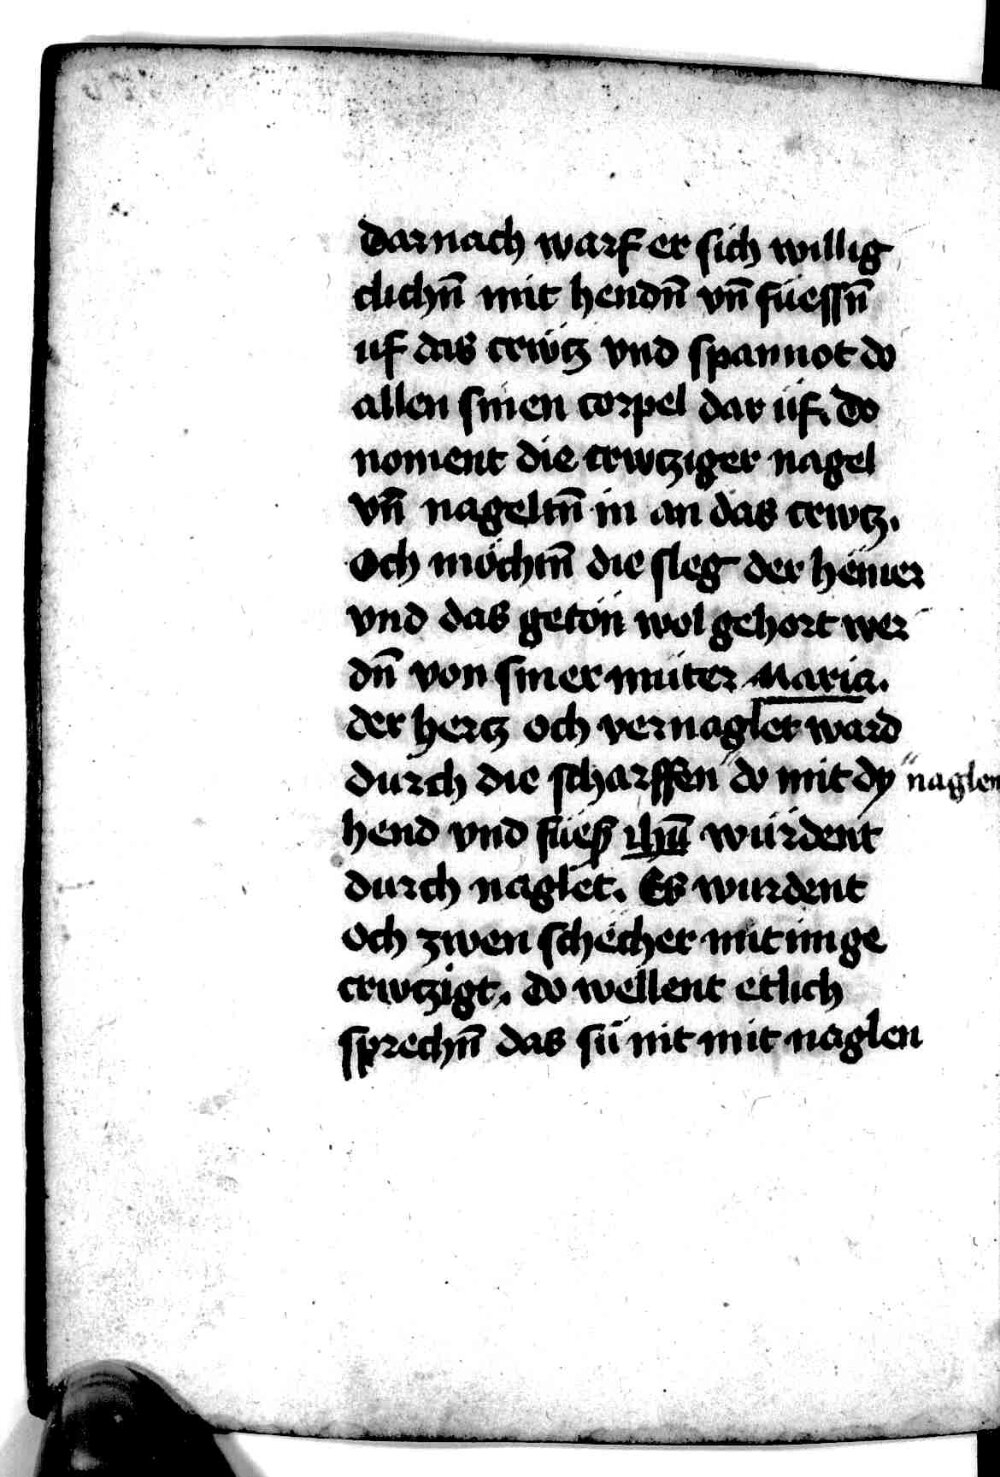 Darnach warf er sich willig
clichn̄ mit hendn̄ vn̄ füessn̄
uf das crütz vnd spannot do
allen sinen corpel dar üf. Do
noment die crwtziger nagel
vn̄ nageltn̄ in an das crwtz.
Och möchtn̄ die sleg der hemer
vnd das getön wol gehort wer
dn̄ von siner müter Maria.
der hertz och vernaglet ward
durch die scharffen " do mit dy " naglen
hend vnd füeß ihū würdent
durch naglet. Es wurdent
och zwen schecher mit im ge
crwtzigt. Do wellent etlich
sprechn̄ das sü nit mit naglen